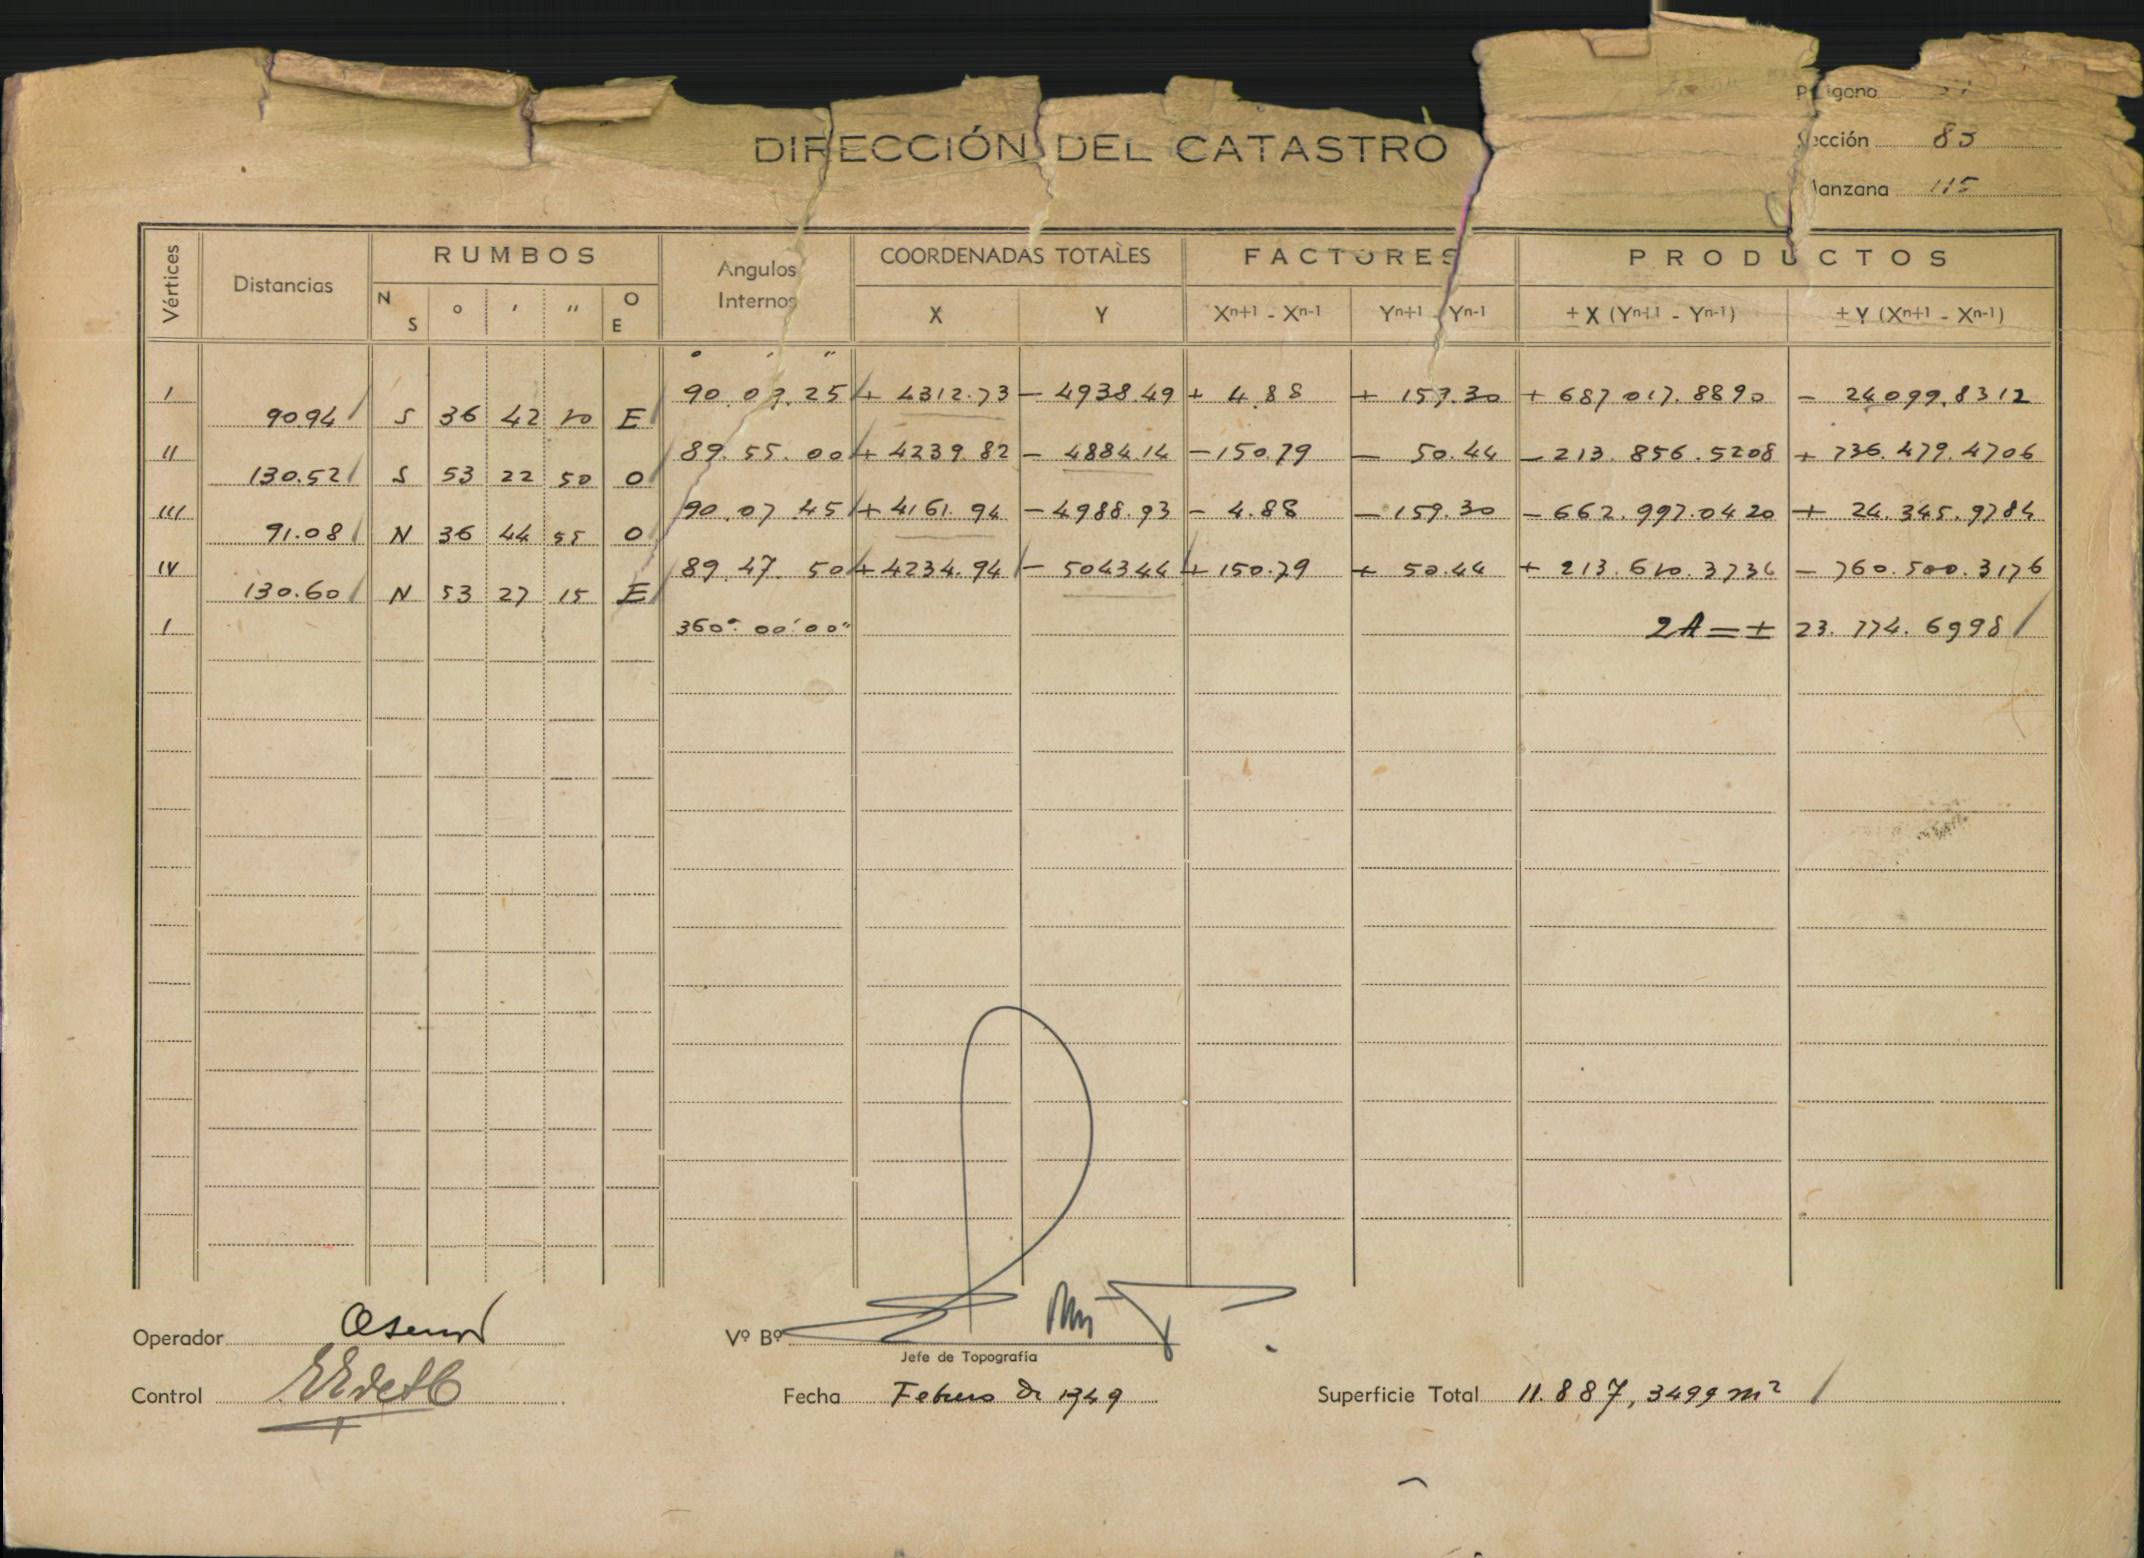 DIRECCIÓN DEL CATASTRO
Polígono
Sección 83
Manzana 115
Vértices Distancias RUMBOS Angulos Internos COORDENADAS TOTALES FACTORES PRODUCTOS
N S ° ' " O E X Y Xn+1 - Xn-1 Yn+1 - Yn-1 ± X (Yn+1 - Yn-1) ± Y (Xn+1 - Xn-1)
° ' "
I 90.09.25 + 4312.73 - 4938.49 + 4.88 + 159.30 + 687017.8890 - 24099.8312
90.94 S 36 42 10 E
II 89.55.00 + 4239.82 - 4884.14 - 150.79 - 50.44 - 213.856.5208 + 736.479.4706
130.52 S 53 22 50 O
III 90.07 45 + 4161.94 - 4988.93 - 4.88 - 159.30 - 662.997.0420 + 24.345.9784
91.08 N 36 44 55 O
IV 89.47.50 + 4234.94 - 5043.44 + 150.79 + 50.44 + 213.610.3736 - 760.500.3176
130.60 N 53 27 15 E
I 360° 00' 00" 2A = ± 23.774.6998
Operador
Vº Bº
Jefe de Topografía
Control
Fecha Febrero de 1949
Superficie Total 11.887,3499 m²